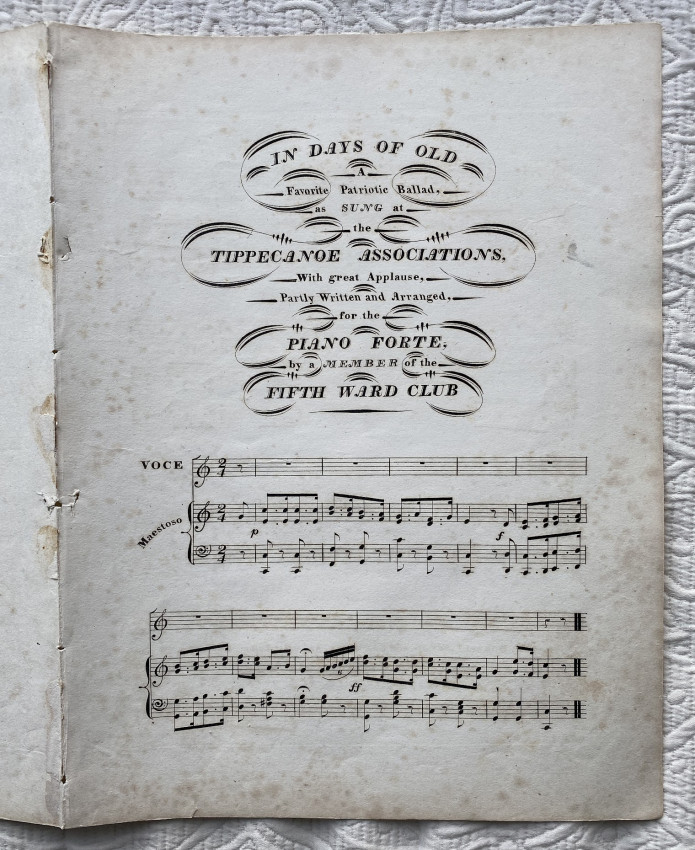 IN DAYS OF OLD
A
Favorite Patriotic Ballad,
as SUNG at
the
TIPPECANOE ASSOCIATIONS,
With great Applause,
Partly Written and Arranged,
for the
PIANO FORTE,
by a MEMBER of the
FIFTH WARD CLUB
VOCE
2/4
Maestoso
2/4
p
f
2/4
ff